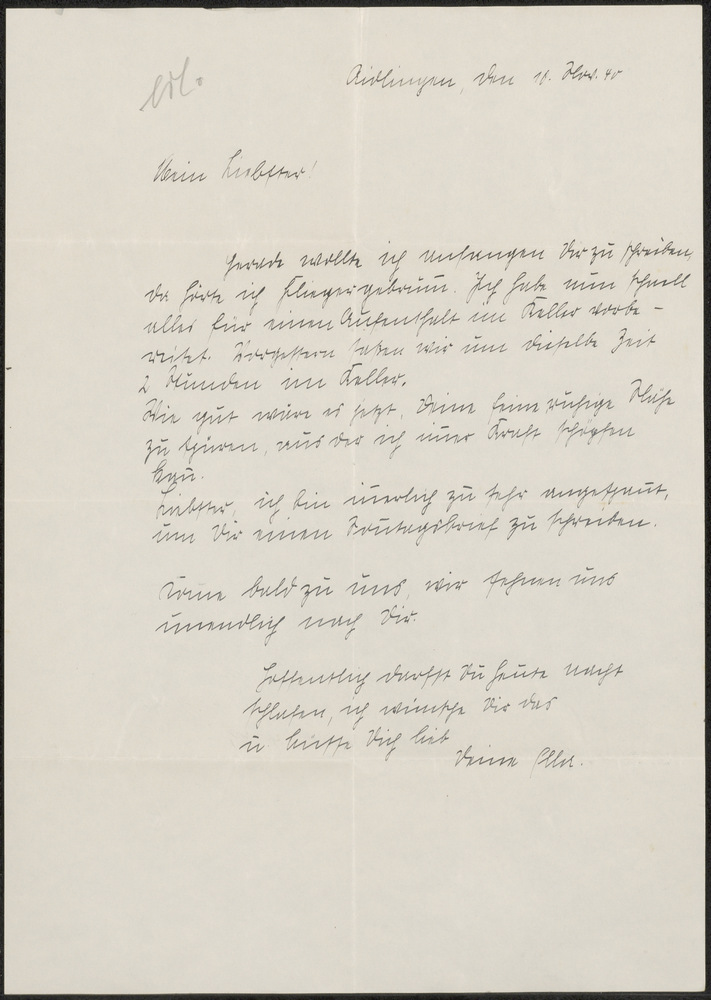 erl.
Aidlingen, den 10. Nov. 40
Mein Liebster!
Gerade wollte ich anfangen Dir zu schreiben,
da hörte ich Fliegergebrumm. Ich habe nun schnell
alles für einen Aufenthalt im Keller vorbe-
reitet. Vorgestern saßen wir um dieselbe Zeit
2 Stunden im Keller.
Wie gut wäre es jetzt, Deine feine ruhige Nähe
zu spüren, aus der ich immer Kraft schöpfen
kann.
Liebster, ich bin innerlich zu sehr angespannt,
um Dir einen Sonntagsbrief zu schreiben.
Komme bald zu uns, wir sehnen uns
unendlich nach Dir.
Hoffentlich darfst Du heute nacht
schlafen, ich wünsche Dir das
u. küsse Dich lieb
Deine